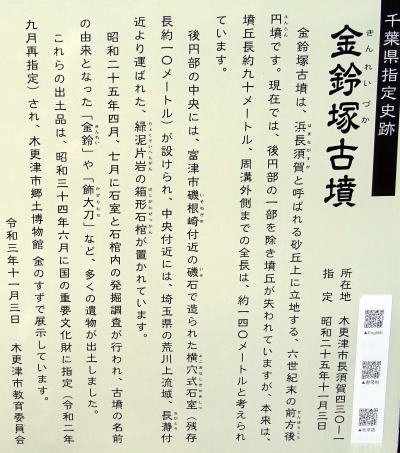 千葉県指定史跡
きんれいづか
金鈴塚古墳
所在地　木更津市長須賀四三〇ー一
指　定　昭和二十五年十一月三日
金鈴塚古墳は、浜長須賀と呼ばれる砂丘上に立地する、六世紀末の前方後
円墳です。現在では、後円部の一部を除き墳丘が失われていますが、本来は、
墳丘長約九十メートル、周溝外側までの全長は、約一四〇メートルと考えられ
ています。
後円部の中央には、富津市磯根崎付近の磯石で造られた横穴式石室（残存
長約一〇メートル）が設けられ、中央付近には、埼玉県の荒川上流域、長瀞付
近より運ばれた、緑泥片岩の箱形石棺が置かれています。
昭和二十五年四月、七月に石室と石棺内の発掘調査が行われ、古墳の名前
の由来となった「金鈴」や「飾大刀」など、多くの遺物が出土しました。
これらの出土品は、昭和三十四年六月に国の重要文化財に指定（令和二年
九月再指定）され、木更津市郷土博物館 金のすずで展示しています。
令和三年十一月三日　木更津市教育委員会
▲English
▲한국어